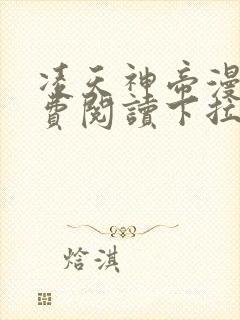 凌天神帝漫
費閱讀下拉
焓淇